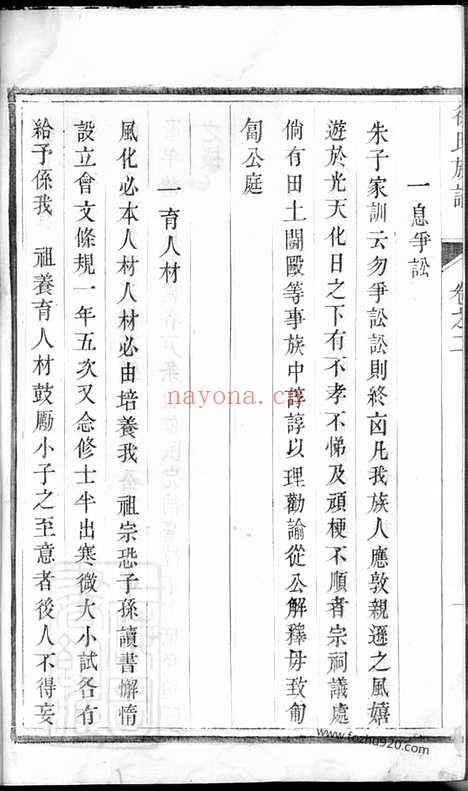 氏族譜 卷之二
一息爭訟
朱子家訓云勿爭訟訟則終凶凡我族人應敦親遜之風嬉
遊於光天化日之下有不孝不悌及頑梗不順者宗祠議處
倘有田土鬭毆等事族中諄諄以理勸諭從公解釋毋致匍
匐公庭
一育人材
風化必本人材人材必由培養我 祖宗恐子孫讀書懈惰
設立會文條規一年五次又念修士半出寒微大小試各有
給予係我 祖養育人材鼓勵小子之至意者後人不得妄
nayona.cn
www.fozhu920.com